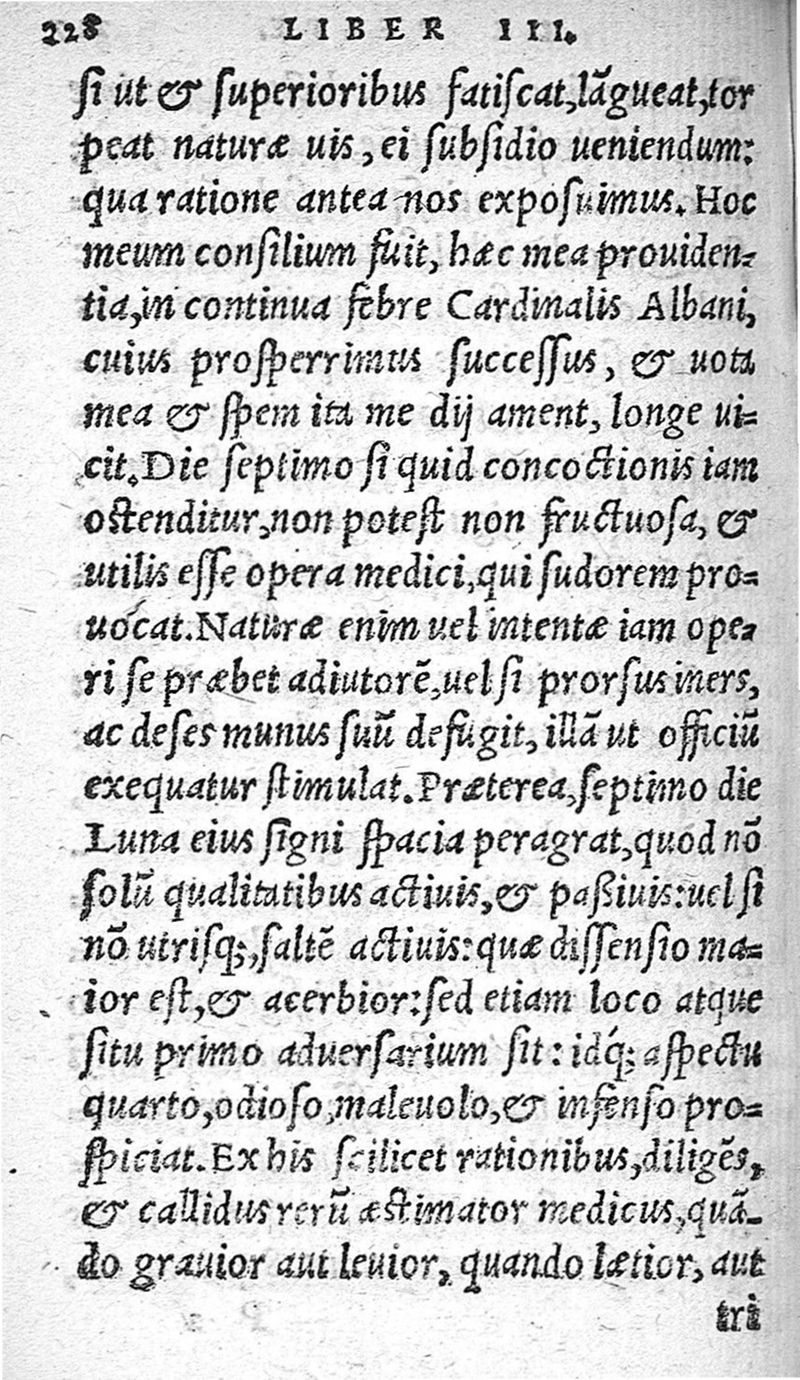 228 LIBER III.
si ut & superioribus fatiscat, lãgueat, tor
peat naturæ uis, ei subsidio ueniendum:
qua ratione antea nos exposuimus. Hoc
meum consilium fuit, hæc mea prouiden-
tia, in continua febre Cardinalis Albani,
cuius prosperrimus successus, & uota
mea & spem ita me dij ament, longe ui-
cit. Die septimo si quid concoctionis iam
ostenditur, non potest non fructuosa, &
utilis esse opera medici, qui sudorem pro-
uocat. Naturæ enim uel intentæ iam ope-
ri se præbet adiutorẽ, uel si prorsus iners,
ac deses munus suũ defugit, illã ut officiũ
exequatur stimulat. Præterea, septimo die
Luna eius signi spacia peragrat, quod nõ
solũ qualitatibus actiuis, & paßiuis: uel si
nõ utrisq;, saltẽ actiuis: quæ dissensio ma-
ior est, & acerbior: sed etiam loco atque
situ primo aduersarium sit: idq́; aspectu
quarto, odioso, maleuolo, & infenso pro-
spiciat. Ex his scilicet rationibus, diligẽs,
& callidus rerũ æstimator medicus, quã-
do grauior aut leuior, quando lætior, aut
tri